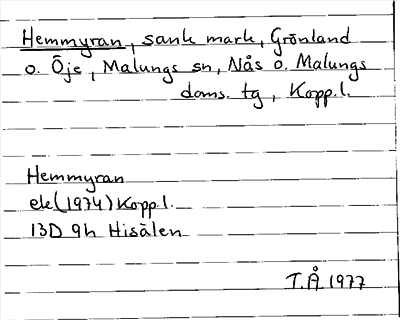 Hemmyran, sank mark, Grönland
o. Öje, Malungs sn, Nås o. Malungs
doms. tg, Kopp. l.
Hemmyran
ek (1974) Kopp. l.
13D 9h Hisälen
T.Å 1977